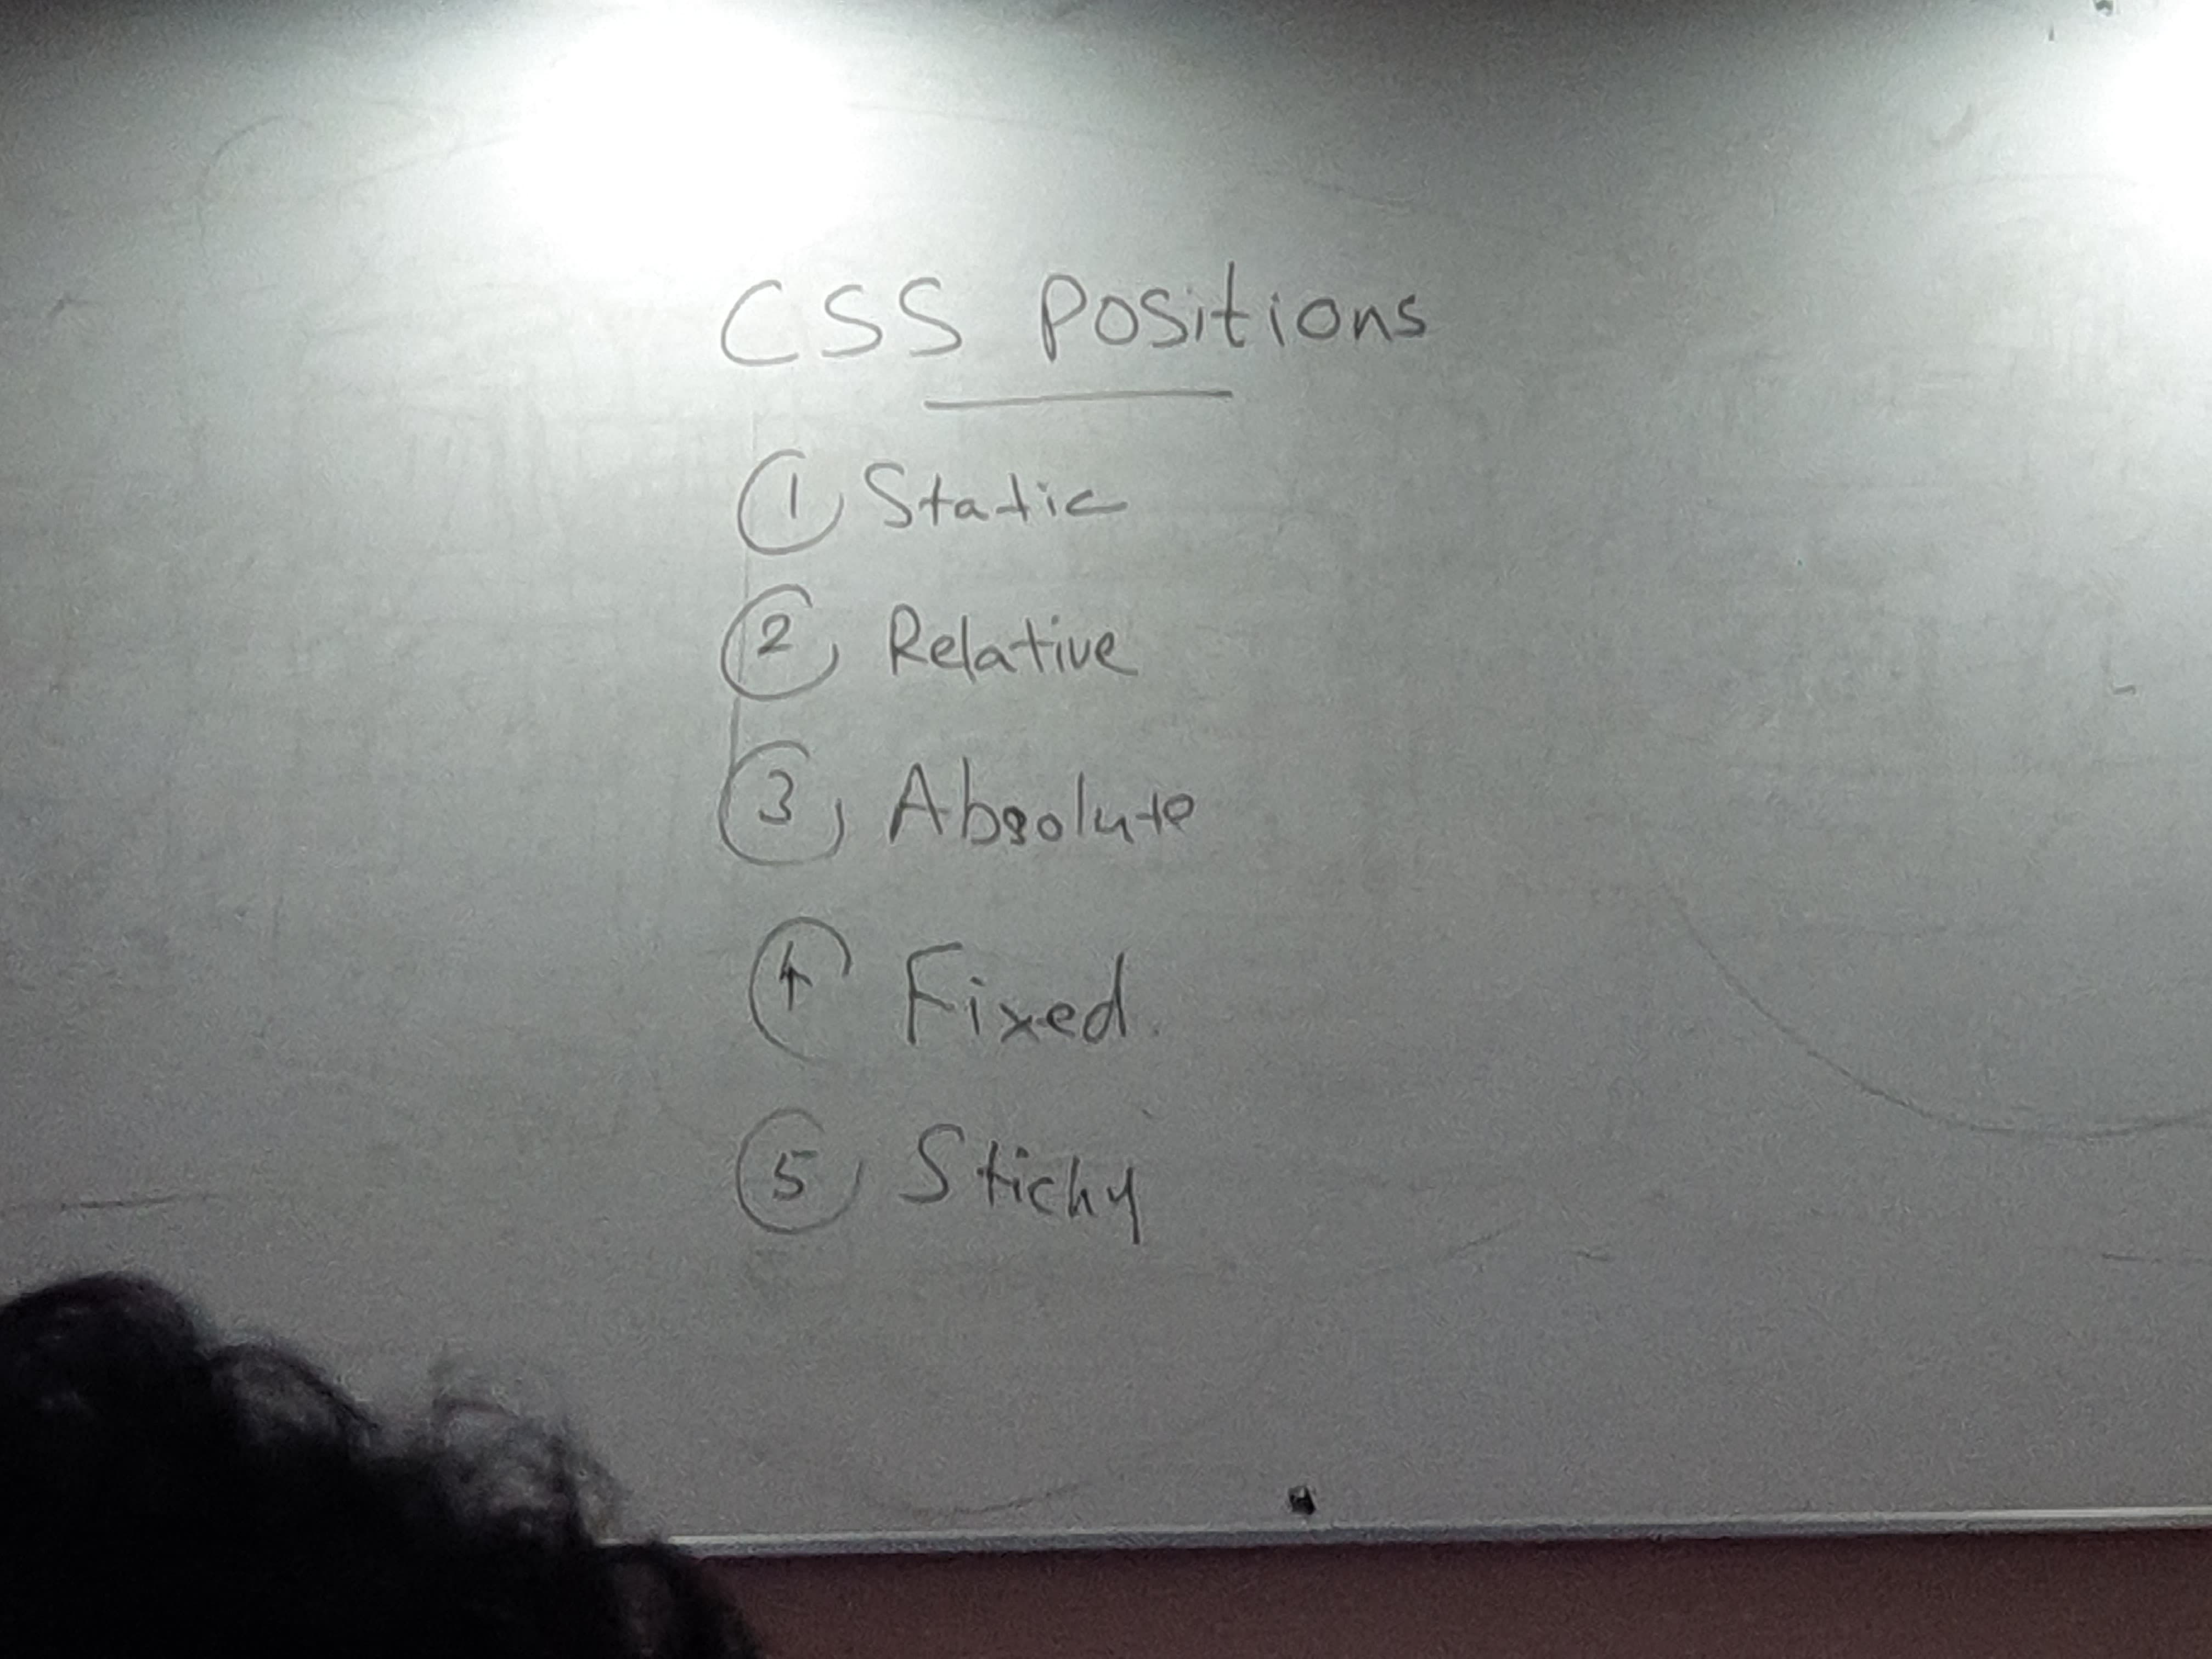 CSS Positions
1 Static
2 Relative
3 Absolute
4 Fixed.
5 Sticky